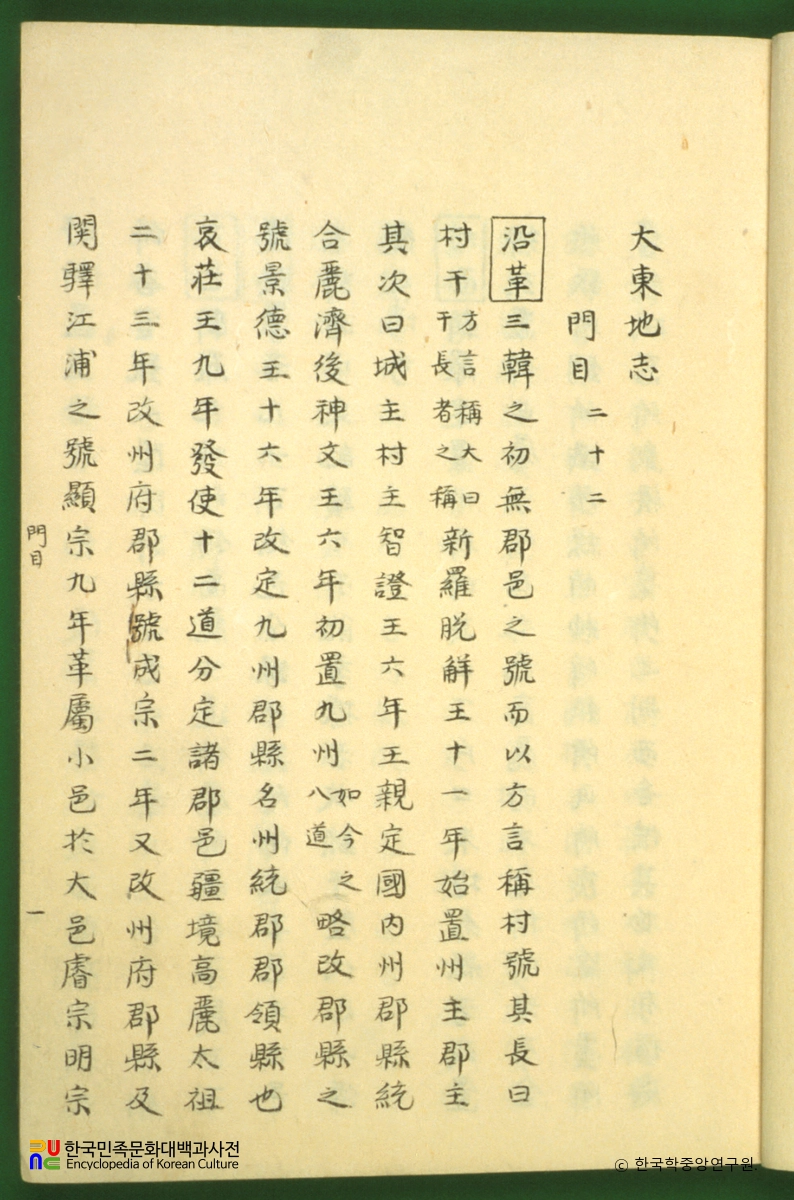 大東地志
門目二十二
沿革三韓之初無郡邑之號而以方言稱村號其長曰
村干方言稱大曰干長者之稱新羅脱解王十一年始置州主郡主
其次曰城主村主智證王六年王親定國內州郡縣統
合麗濟後神文王六年初置九州如今之八道略改郡縣之
號景德王十六年改定九州郡縣名州統郡郡領縣也
哀莊王九年發使十二道分定諸郡邑疆境高麗太祖
二十三年改州府郡縣號成宗二年又改州府郡縣及
関驛江浦之號顯宗九年革屬小邑於大邑睿宗明宗
門目
一
한국민족문화대백과사전
Encyclopedia of Korean Culture
© 한국학중앙연구원.